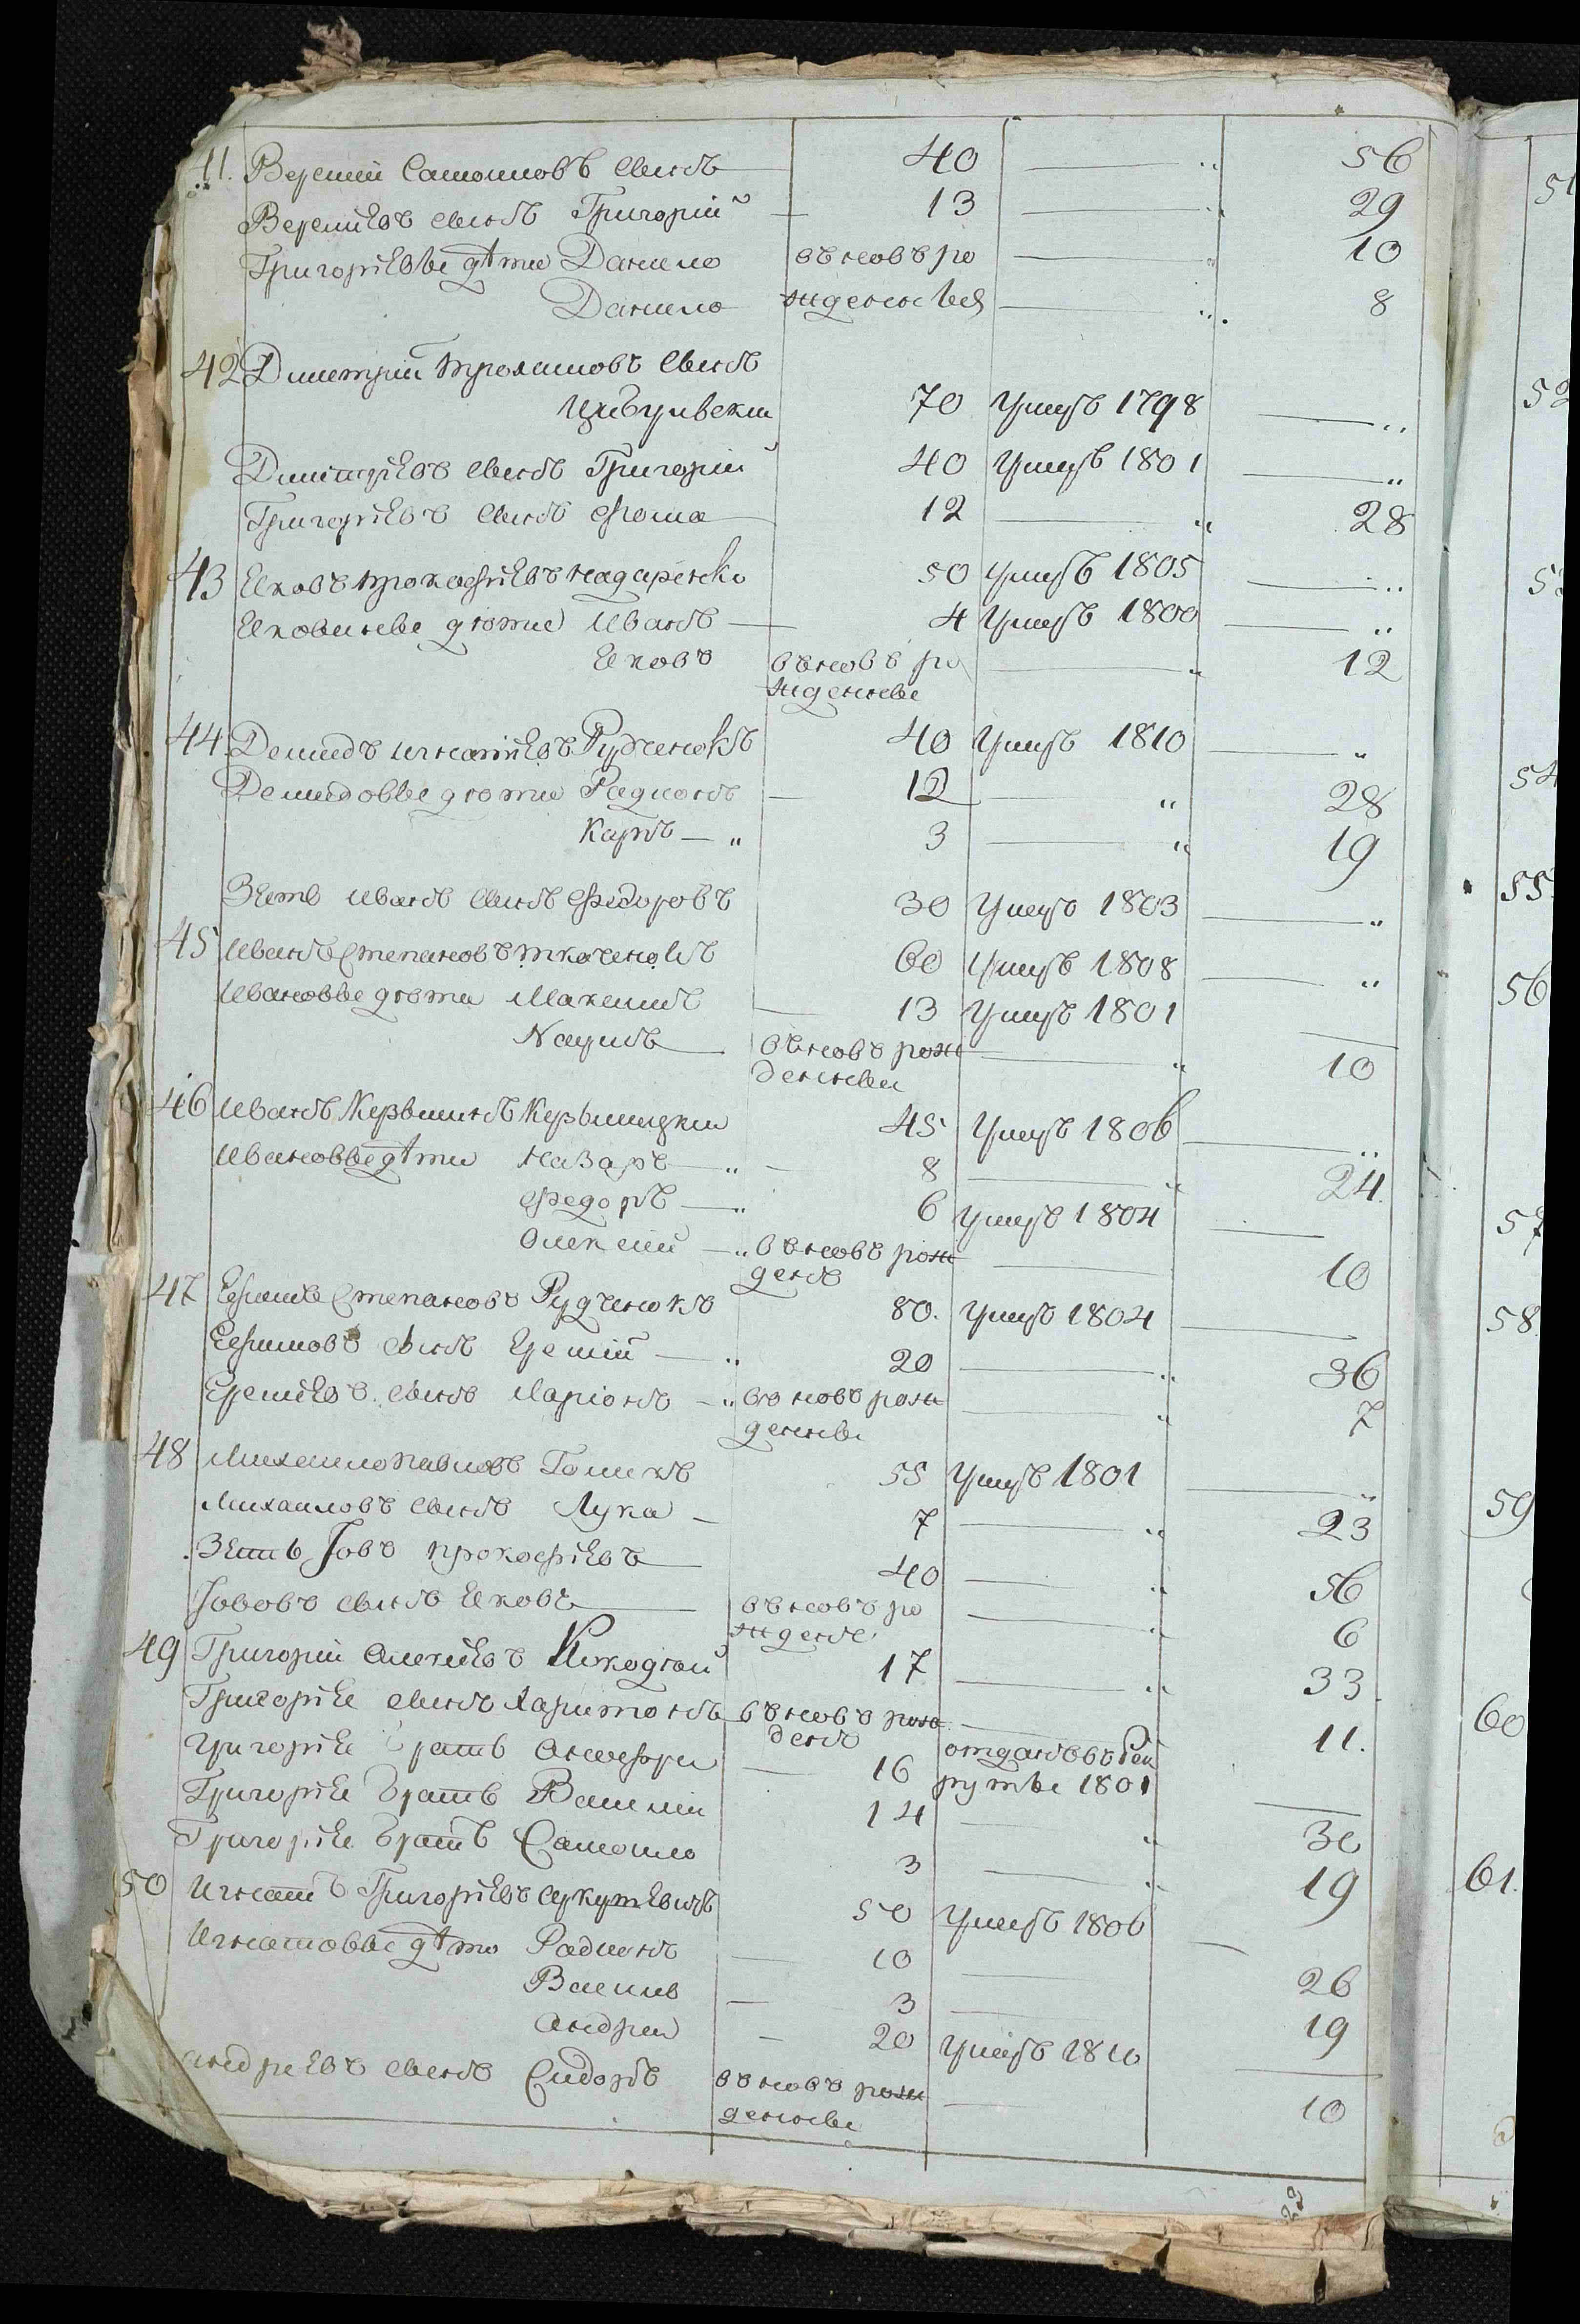 41. Веремій Самоиловъ Сынъ 40 56
Веремѣевъ сынъ Григорій 13 29
Григоріевы дѣти Данило вь новь ро 10
Данило жденные 8
42 Дмитрій Сынъ
70 Умеръ 1798
Дмитріевъ сынъ Григорій 40 Умеръ 1801
Григоріевъ Сынъ Фома 12 28
43 Яковъ Прокофіевъ 50 умеръ 1805
Яковлевы дѣти Иванъ 4 Умеръ 1800
Яковъ вь новь ро 12
жденные
44. Демидъ Игнатіевъ 40 Умеръ 1810
Демидовы дѣти Радионъ 12 28
Карпъ 3 19
Зять Иванъ Сынъ Федоровъ 30 Умеръ 1803
45 Иванъ Степановъ Ткаченокъ 60 Умеръ 1808
Ивановы дѣти Максимъ 13 Умеръ 1801
Наумъ вь новь рож 10
денные
46 Иванъ 45 Умеръ 1806
Ивановы дѣти Назаръ 8 24
Федоръ 6 Умеръ 1804
Олексій вь новь рож 10
денъ
47 Ефимъ Степановъ Рудченокъ 80. Умеръ 1804
Ефимовъ сынъ Еремій 20 36
Еремѣевъ сынъ Ларіонъ вь новь рож 7
денны
48 Михаило Павловъ 55 Умеръ 1801
Михаиловъ Сынъ Лука 7 23
Зять Іовъ Прокофіевъ 40 56
Іововъ сынъ Яковъ вь новь ро 6
жденъ
49 Григорій Алексѣевъ 17 33
Григоріе сынъ Харитонъ вь новь рож 11.
денъ
Григоріе братъ 16 отданъ въ рек
руты 1801
Григоріе братъ Василій 14 30
Григоріе братъ Самоило 3 19
50 Игнатъ Григоріевъ 50 Умеръ 1806
Игнатовы дѣти Радионъ 10 26
Василь 3 19
Андрей 20 Умеръ 1810
Андреевъ Сынъ Сидоръ вь новь рож 10
денны
29
51
52
54
55
56
57
58
59
60
61.